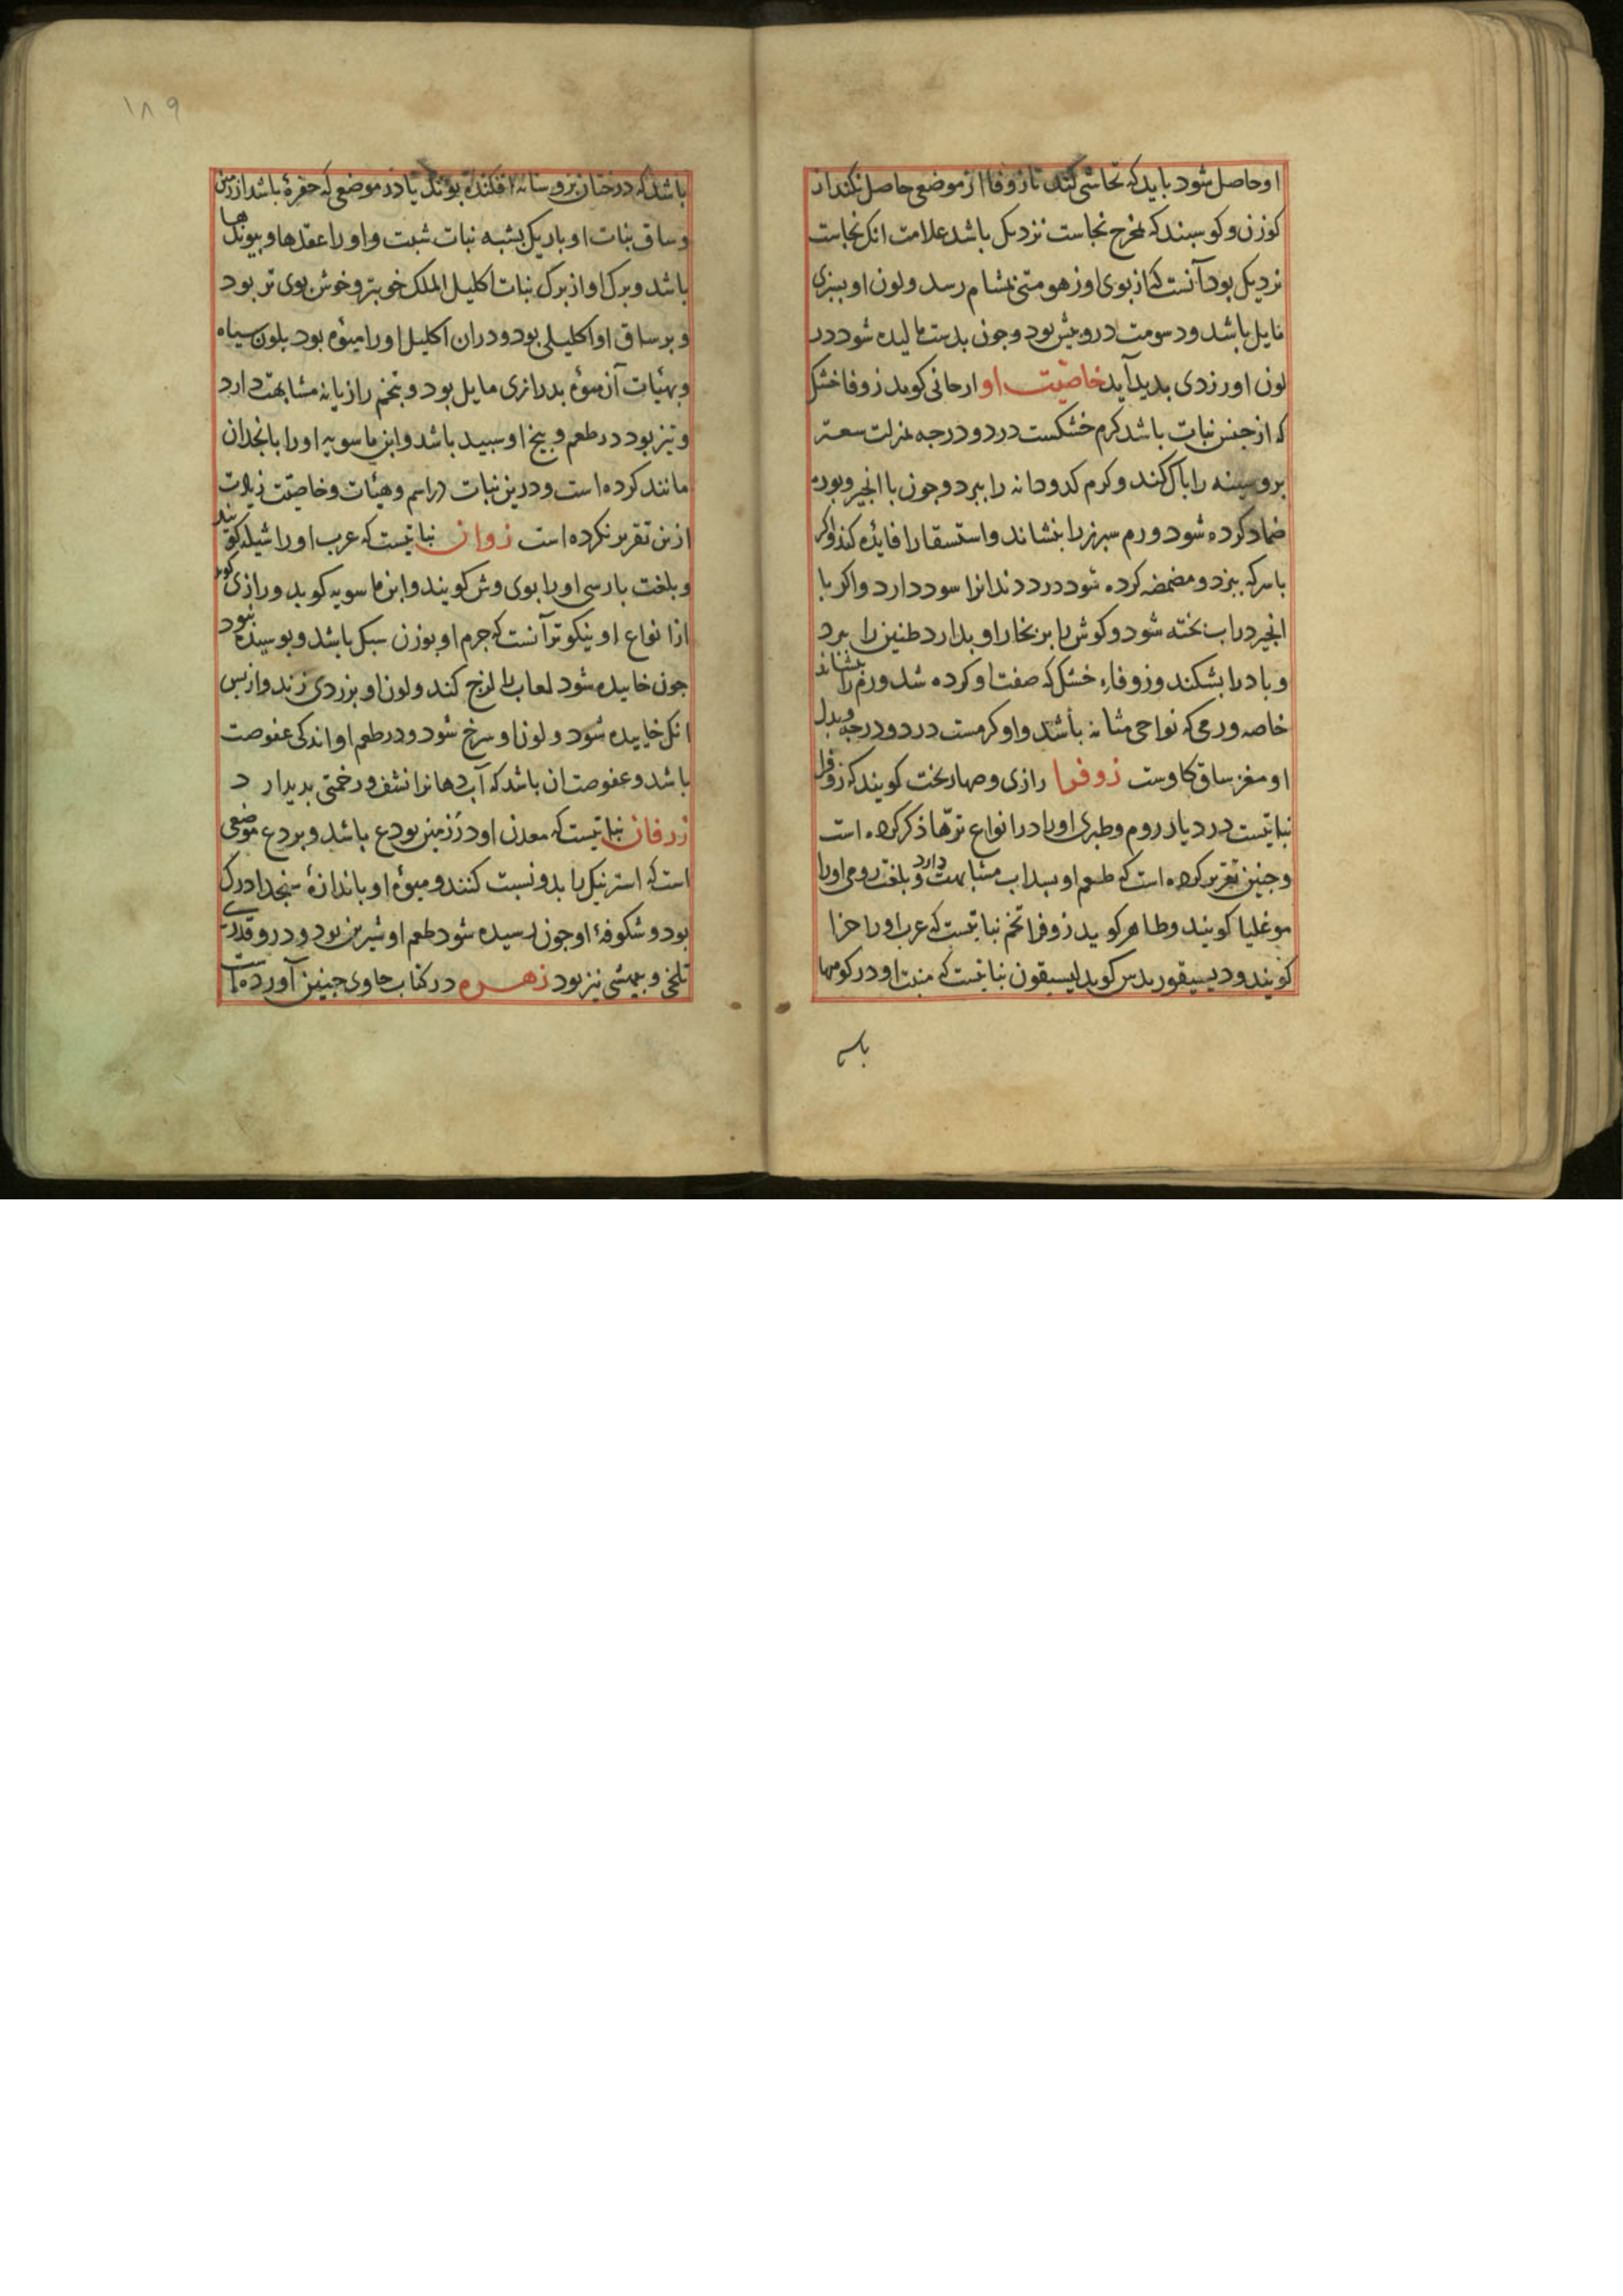 او حاصل شود باید که تحاشی کنند تا زوفا از موضعی حاصل نکند از
کوزن و کوسبند که مخرج نجاست نزدیک باشد علامت انک نجاست
نزدیک بود آنست که از بوی او زهومتی بمشام رسد و لون او بسبزی
مایل باشد و دسومت درو بیش بود و جون بدست مالیده شود در
لون او زردی بدید آید خاصّیت او ارحانی کوید زوفا خشک
که از جنس نبات باشد کرم خشکست در دو درجه بمنزلت سعتر
برو سینه را باک کند و کرم کدودانه را ببرد و جون با انجیر و بوره
ضماد کرده شود ورم سبرز را بنشاند و استسقا را فایده کند و اکر
با سرکه ببزد و مضمضه کرده شود درد دندانرا سود دارد و اکر با
انجیر در آب بخته شود و کوش را بر بخار او بدارد طنین را ببرد
و باد را بشکند و زوفاء خشک که صفت او کرده شد ورم را بنشاند
خاصه ورمی که نواحی مثانه باشد و او کرمست در دو درجه و بدل
او مغز ساق کاوست زوفرا رازی و صهاربخت کویند که زوفرا
نباتیست در دیار روم و طبری او را در انواع ترّها ذکر کرده است
و جنین تقریر کرده است که طعم او بسداب مشابهت دارد و بلغت رومی او را
موغلیا کویند و طاهر کوید زوفرا تخم نباتیست که عرب او را حزا
کویند و دیسیقوریدس کوید لیسیقون نباتیست که منبت او در کوهها
باشد که درختان برو سایه افکنده بوند یا در موضعی که حفرهٔ باشد از زمین
و ساق نبات او باریک بشبه نبات شبت و او را عقدها و بیوندها
باشد و برک او از برک نبات اکلیل الملک خوبتر و خوش بوی تر بود
و بر ساق او اکلیلی بود و در ان اکلیل او را میوه بود بلون سیاه
و بهیئات آن میوه بدرازی مایل بود و بتخم رازیانه مشابهت دارد
و تیز بود در طعم و بیخ او سبید باشد و ابن ماسویه او را بانجدان
مانند کرده است و درین نبات در اسم و هیئات و خاصیّت زیادت
ازین تقریر نکرده است زوان نباتیست که عرب او را شیلم کویند
و بلغت بارسی او را بوی وش کویند و ابن ماسویه کوید و رازی کوید
از انواع او نیکوتر آنست که جرم او بوزن سبک باشد و بوسیده نبود
جون خاییده شود لعاب را لزج کند و لون او بزردی زند و از بس
انک خاییده شود و لون او سرخ شود و در طعم او اندکی عفوصت
باشد و عفوصت ان باشد که آب دهانرا نشف و رخمتی بدیدارد
زرفان نباتیست که معدن او در زمین بودع باشد و بردع موضعی
است که استر نیک را بدو نسبت کنند و میوه او باندازهٔ سنجد
بود و شکوفهٔ او جون رسیده شود طعم او شیرین بود و درو قدری
تلخی و بمیشی نیز بود زهره در کتاب حاوی جنین آورده است
باشد
۱۸۹